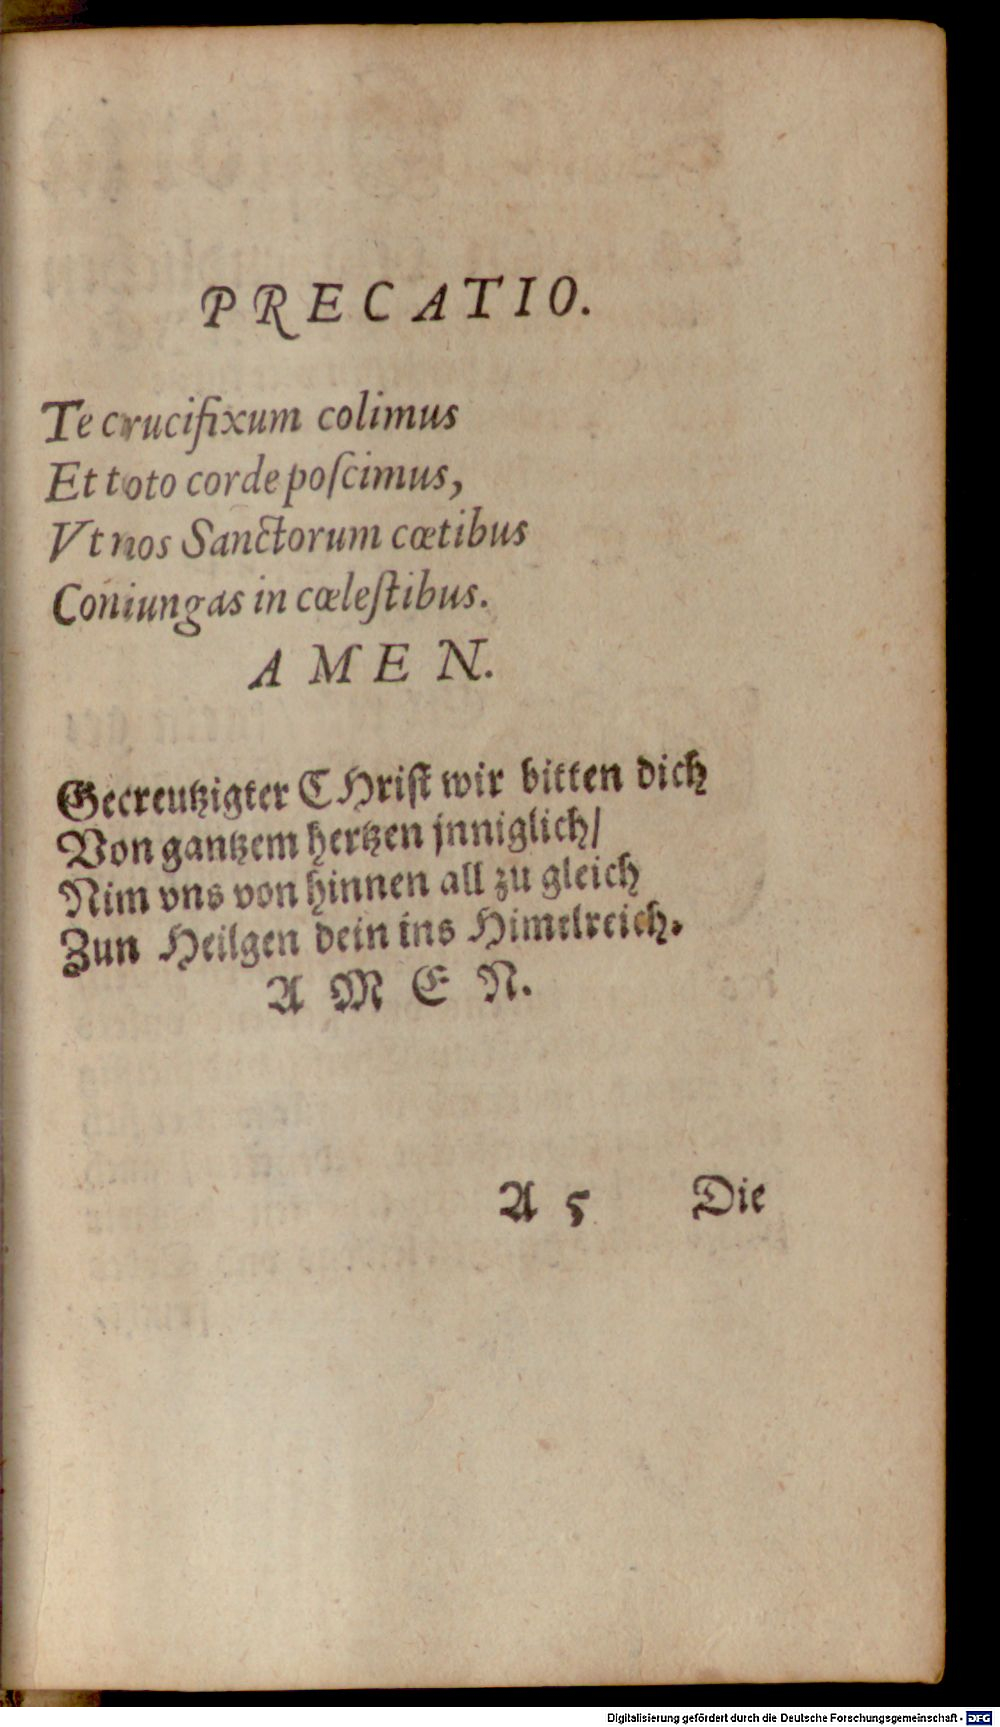 PRECATIO.
Te crucifixum colimus
Et toto corde poſcimus,
Vt nos Sanctorum cœtibus
Coniungas in cœleſtibus.
AMEN.
Gecreutzigter CHriſt wir bitten dich
Von gantzem hertzen jnniglich/
Nim vns von hinnen all zu gleich
Zun Heilgen dein ins Himelreich.
AMEN.
A 5 Die
Digitalisierung gefördert durch die Deutsche Forschungsgemeinschaft - DFG